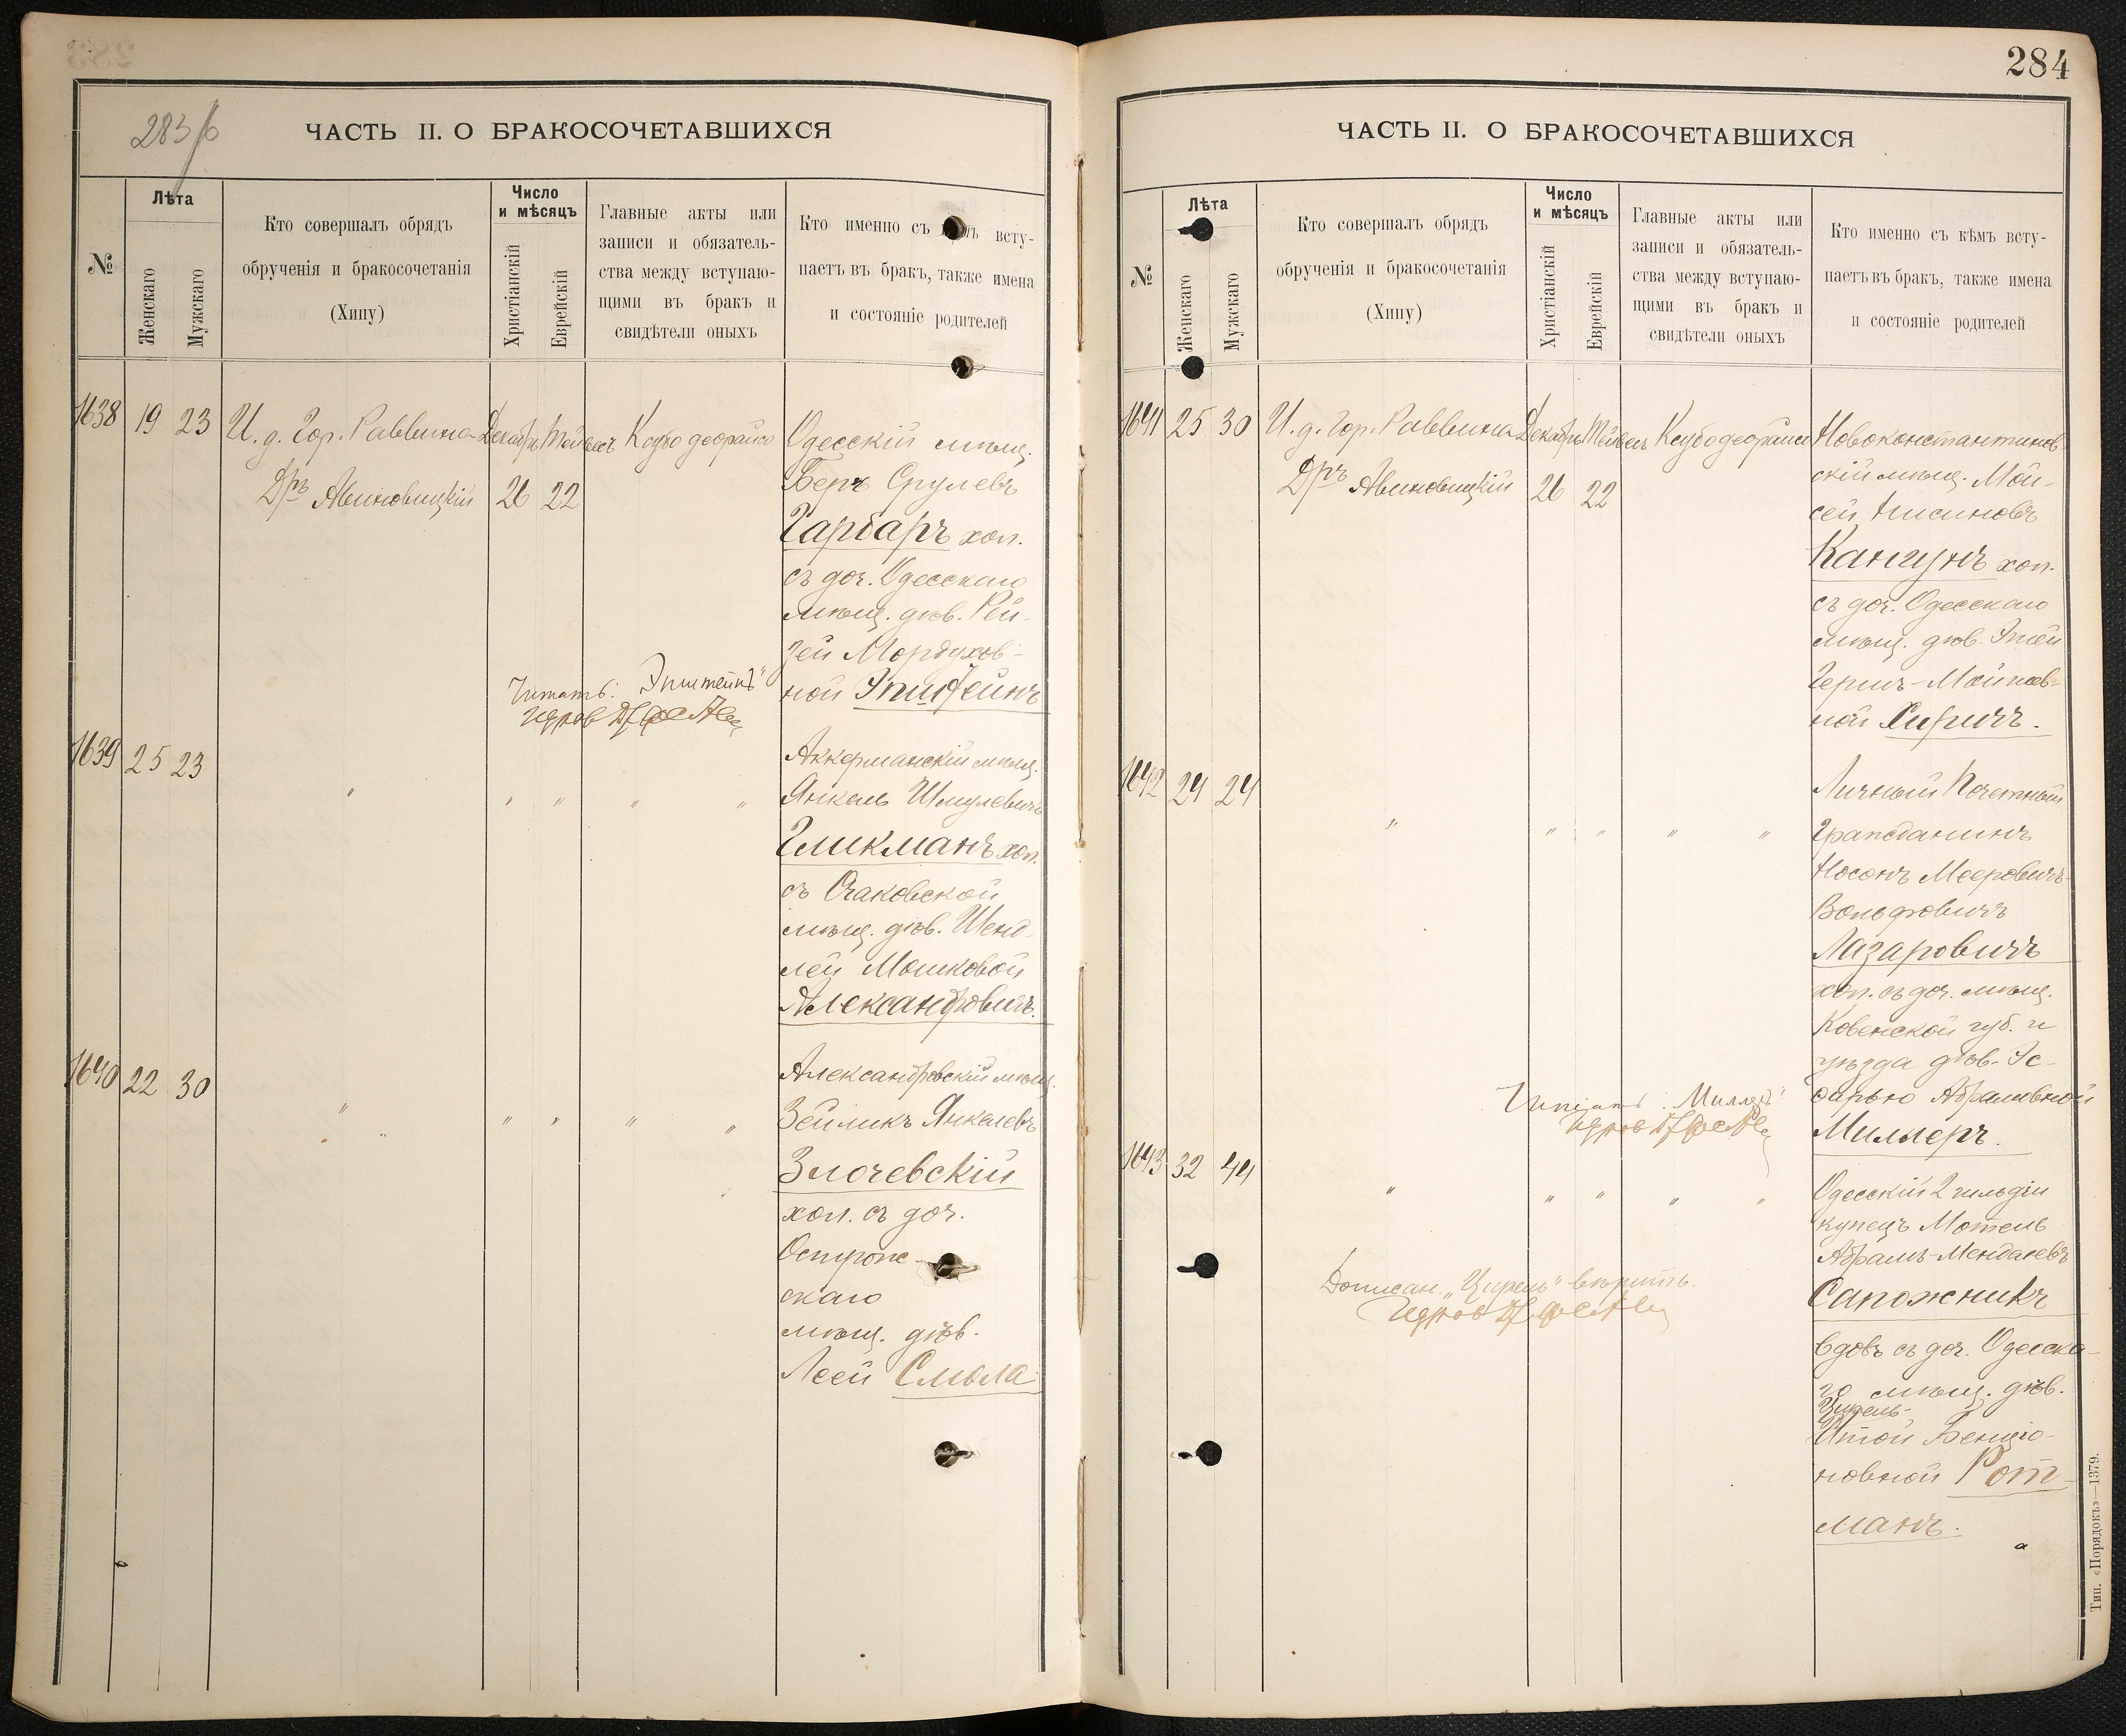 283 об
ЧАСТЬ II. О БРАКОСОЧЕТАВШИХСЯ
№
Лѣта
Женскаго
Мужскаго
Кто совершалъ обрядъ
обрученія и бракосочетанія
(Хипу)
Число
и мѣсяцъ
Христіанскій
Еврейскій
Главные акты или
записи и обязатель-
ства между вступаю-
щими въ бракъ и
свидѣтели оныхъ
Кто именно съ всту-
паетъ въ бракъ, также имена
и состояніе родителей
1638 19 23 И. д. Гор. Раввина Декабрь Тейвесъ Ксубо деорайсо
Дръ Авиновицкій 26 22
Одесскій мѣщ.
Беръ Срулевъ
Гарбаръ хол.
съ доч. Одесскаго
мѣщ. дѣв. Рей-
зей Мордухов-
ной Эпштейнъ
Читать: "Эпштейнъ"
1639 25 23 " " " " "
Аккерманскій мѣщ.
Янкель Шмулевичъ
Гликманъ хол.
съ Очаковской
мѣщ. дѣв. Шенд-
лей Мошковой
Александровичъ.
1640 22 30 " " " " "
Александровскій мѣщ.
Зейликъ Янкелевъ
Злочевскій
хол. съ доч.
Острож-
скаго
мѣщ. дѣв.
Леей Смола
284
ЧАСТЬ II. О БРАКОСОЧЕТАВШИХСЯ
№
Лѣта
Женскаго
Мужскаго
Кто совершалъ обрядъ
обрученія и бракосочетанія
(Хипу)
Число
и мѣсяцъ
Христіанскій
Еврейскій
Главные акты или
записи и обязатель-
ства между вступаю-
щими въ бракъ и
свидѣтели оныхъ
Кто именно съ кѣмъ всту-
паетъ въ бракъ, также имена
и состояніе родителей
1641 25 30 И. д. Гор. Раввина Декабрь Тейвесъ Ксубо деорайсо
Дръ Авиновицкій 26 22
Новоконстантинов-
скій мѣщ. Мой-
сей Нисиновъ
Кангунъ хол.
съ доч. Одесскаго
мѣщ. дѣв. Этей
Герш-Мойшов-
ной
1642 24 24 " " " " "
Личный Почетный
Гражданинъ
Носонъ Мееровичъ-
Вольфовичъ
Лазаровичъ
хол. съ доч. мѣщ.
Ковенской губ. и
уѣзда дѣв. Эс-
фирью Абрамовной
Миллеръ.
Читать: "Миллеръ"
1643 32 44 " " " " "
Одесскій 2 гильдіи
купецъ Мотель
Абрамъ-Менделевъ
Сапожникъ
вдовъ съ доч. Одесска-
го мѣщ. дѣв.
Цирель-
Итой Бенціо-
новной Рот-
манъ.
Дописан. "Цирель" вѣрить.
Тип. «Порядокъ»—1379.